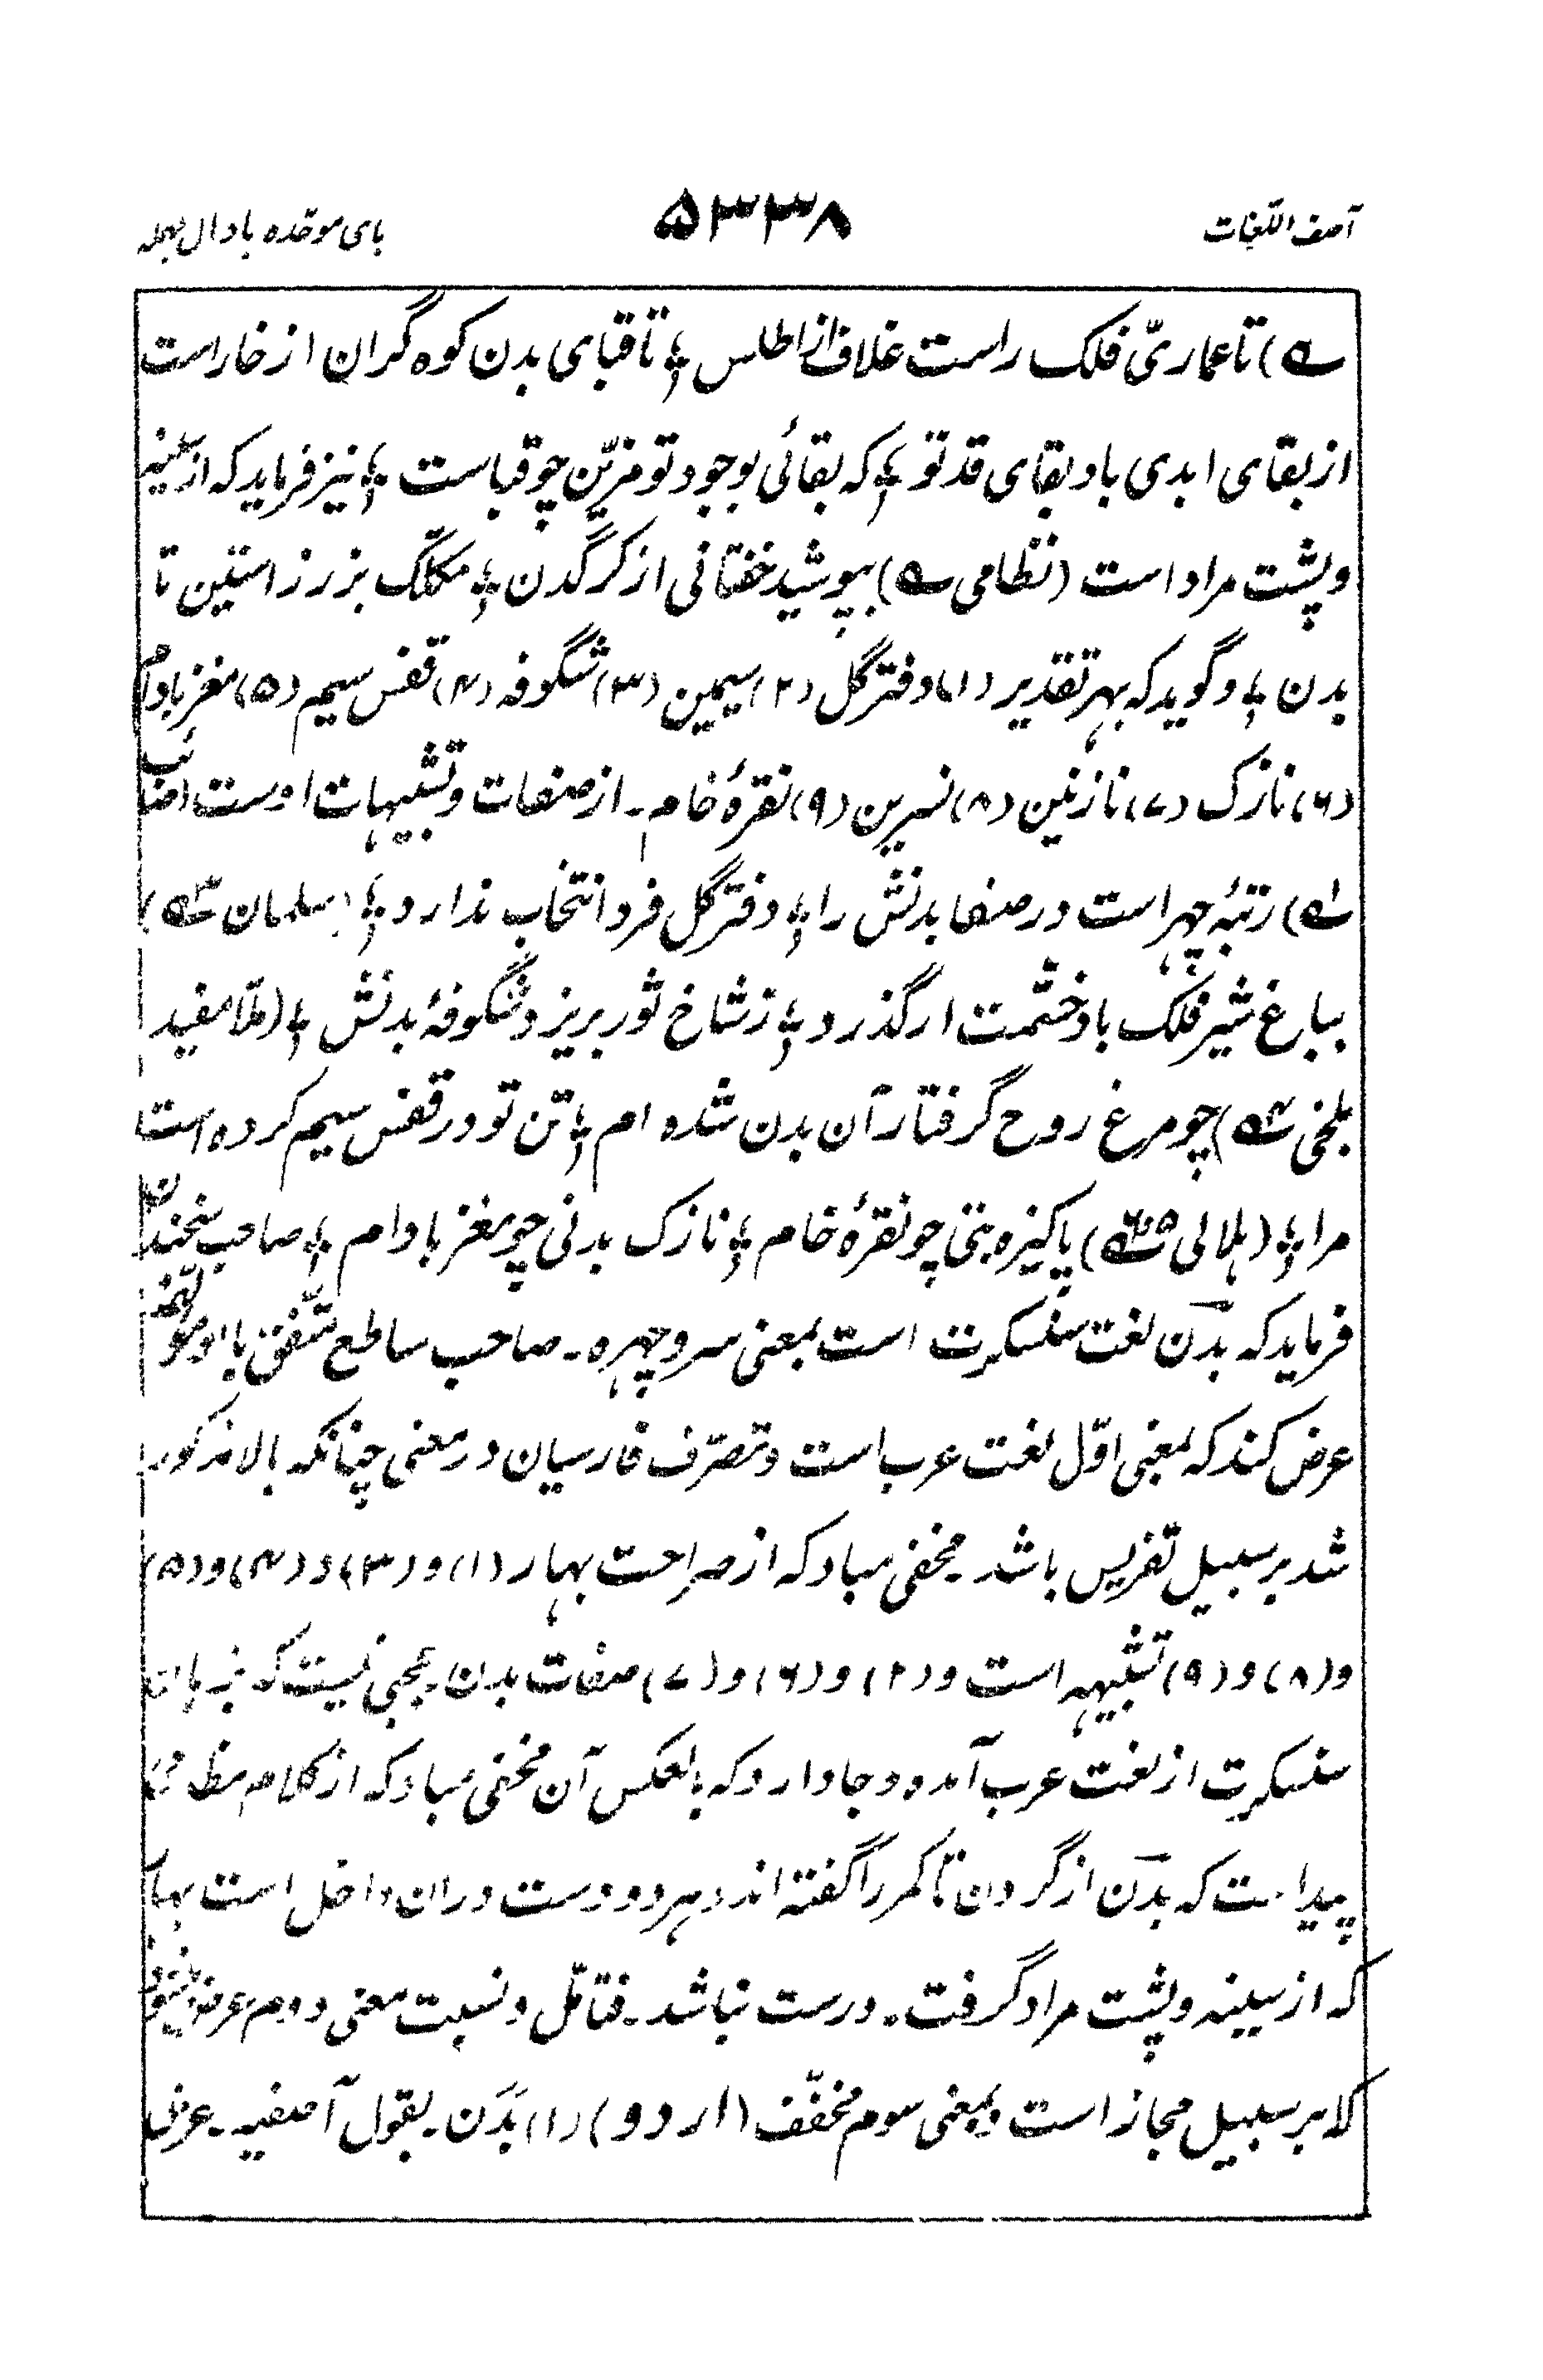 آصف اللغات ۵۳۳۸ بای موحّده با دال مہملہ
ے) تا عماریّ فلک راست غلاف از اطلس ؛ تا قبای بدن کوہ گران از خاراست
از بقای ابدی باد بقای قد تو ؛ کہ بقائی بوجود تو مزیّن چو قباست ؛ نیز فرماید کہ از سینہ
و پشت مراد است (نظامی ے) بپوشید خفتانی از کرگدن ؛ مکلّک بزر ز استین تا
بدن ؛ و گوید کہ بہر تقدیر (۱) دفتر گل (۲) سیمین (۳) شگوفہ (۴) قفس سیم (۵) مغز بادام
(۶) نازک (۷) نازنین (۸) نسرین (۹) نقرۂ خام ۔ از صفات و تشبیہات اوست (صائب
ے۱) رتبۂ چہر است در صفا بدنش را ؛ دفتر گل فرد انتخاب ندارد ؛ (سلمان ے۳)
بباغ شیر فلک باد خشمت ار گذرد ؛ ز شاخ ثور بریزد شگوفۂ بدنش ؛ (ملّا مفید
بلخی ے۴) چو مرغ روح گرفتار آن بدن شدہ ام ؛ تن تو در قفس سیم کردہ است
مرا ؛ (ہلالی ے۵) پاکیزہ تنی چو نقرۂ خام ؛ نازک بدنی چو مغز بادام ؛ صاحب سخندان
فرماید کہ بدن لغت سنسکرت است بمعنی سر و چہرہ ۔ صاحب ساطع متّفق با او مؤلّف
عرض کند کہ بمعنی اوّل لغت عرب است و تصرّف فارسیان در معنی چنانکہ بالا مذکور
شد بر سبیل تفریس باشد ۔ مخفی مباد کہ از صراحت بہار (۱) و (۳) و (۴) و (۵)
و (۸) و (۹) تشبیہہ است و (۲) و (۶) و (۷) صفات بدن ۔ عجبی نیست کہ
سنسکرت از لغت عرب آمدہ و جا دارد کہ بالعکس آن مخفی مباد کہ از کلام
پیداست کہ بدن از گردن تا کمر را گفتہ اند و ہر دو دست دران داخل است بہار
کہ از سینہ و پشت مراد گرفت ۔ درست نباشد ۔ فتامّل و نسبت معنی دوم عرض
کلا بر سبیل مجاز است و بمعنی سوم مخفّف (اردو) (۱) بَدَن ۔ بقول آصفیہ ۔ عربی